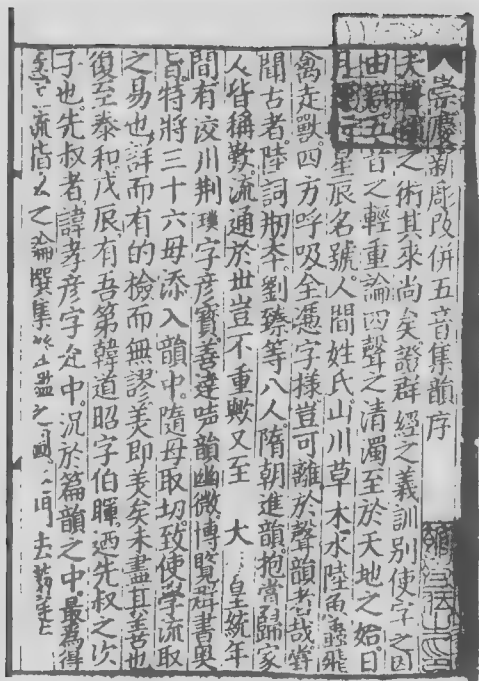 崇慶新彫改併五音集韻序
夫聲韻之術其來尚矣證群經之義訓別使字之因
由辯五音之輕重論四聲之清濁至於天地之始日
月星辰名號人間姓氏山川草木水陸魚蟲飛
禽走獸四方呼吸全憑字樣豈可離於聲韻者哉甞
聞古者陸詞期本劉臻等八人隋朝進韻抱賞歸家
人皆稱歎流通於世豈不重歟又至大皇統年
間有洨川荆璞字彦寶善達聲韻幽微博覽群書奥
旨特將三十六母添入韻中隨母取切致使學流取
之易也詳而有的檢而無謬美即美矣未盡其善也
復至泰和戊辰有吾第韓道昭字伯暉迺先叔之次
子也先叔者諱孝彦字允中況於篇韻之中最為得
流皆之論撰集